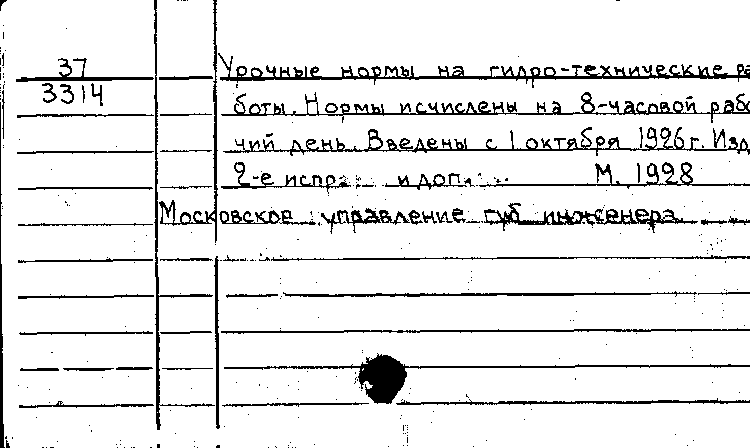 37
3314
Урочные нормы на гидро-технические ра
боты. Нормы исчислены на 8-часовой рабо
чий день. Введены с 1 октября 1926 г. Изд
2-е испр. и доп. М. 1928
Московское управление губ инженера